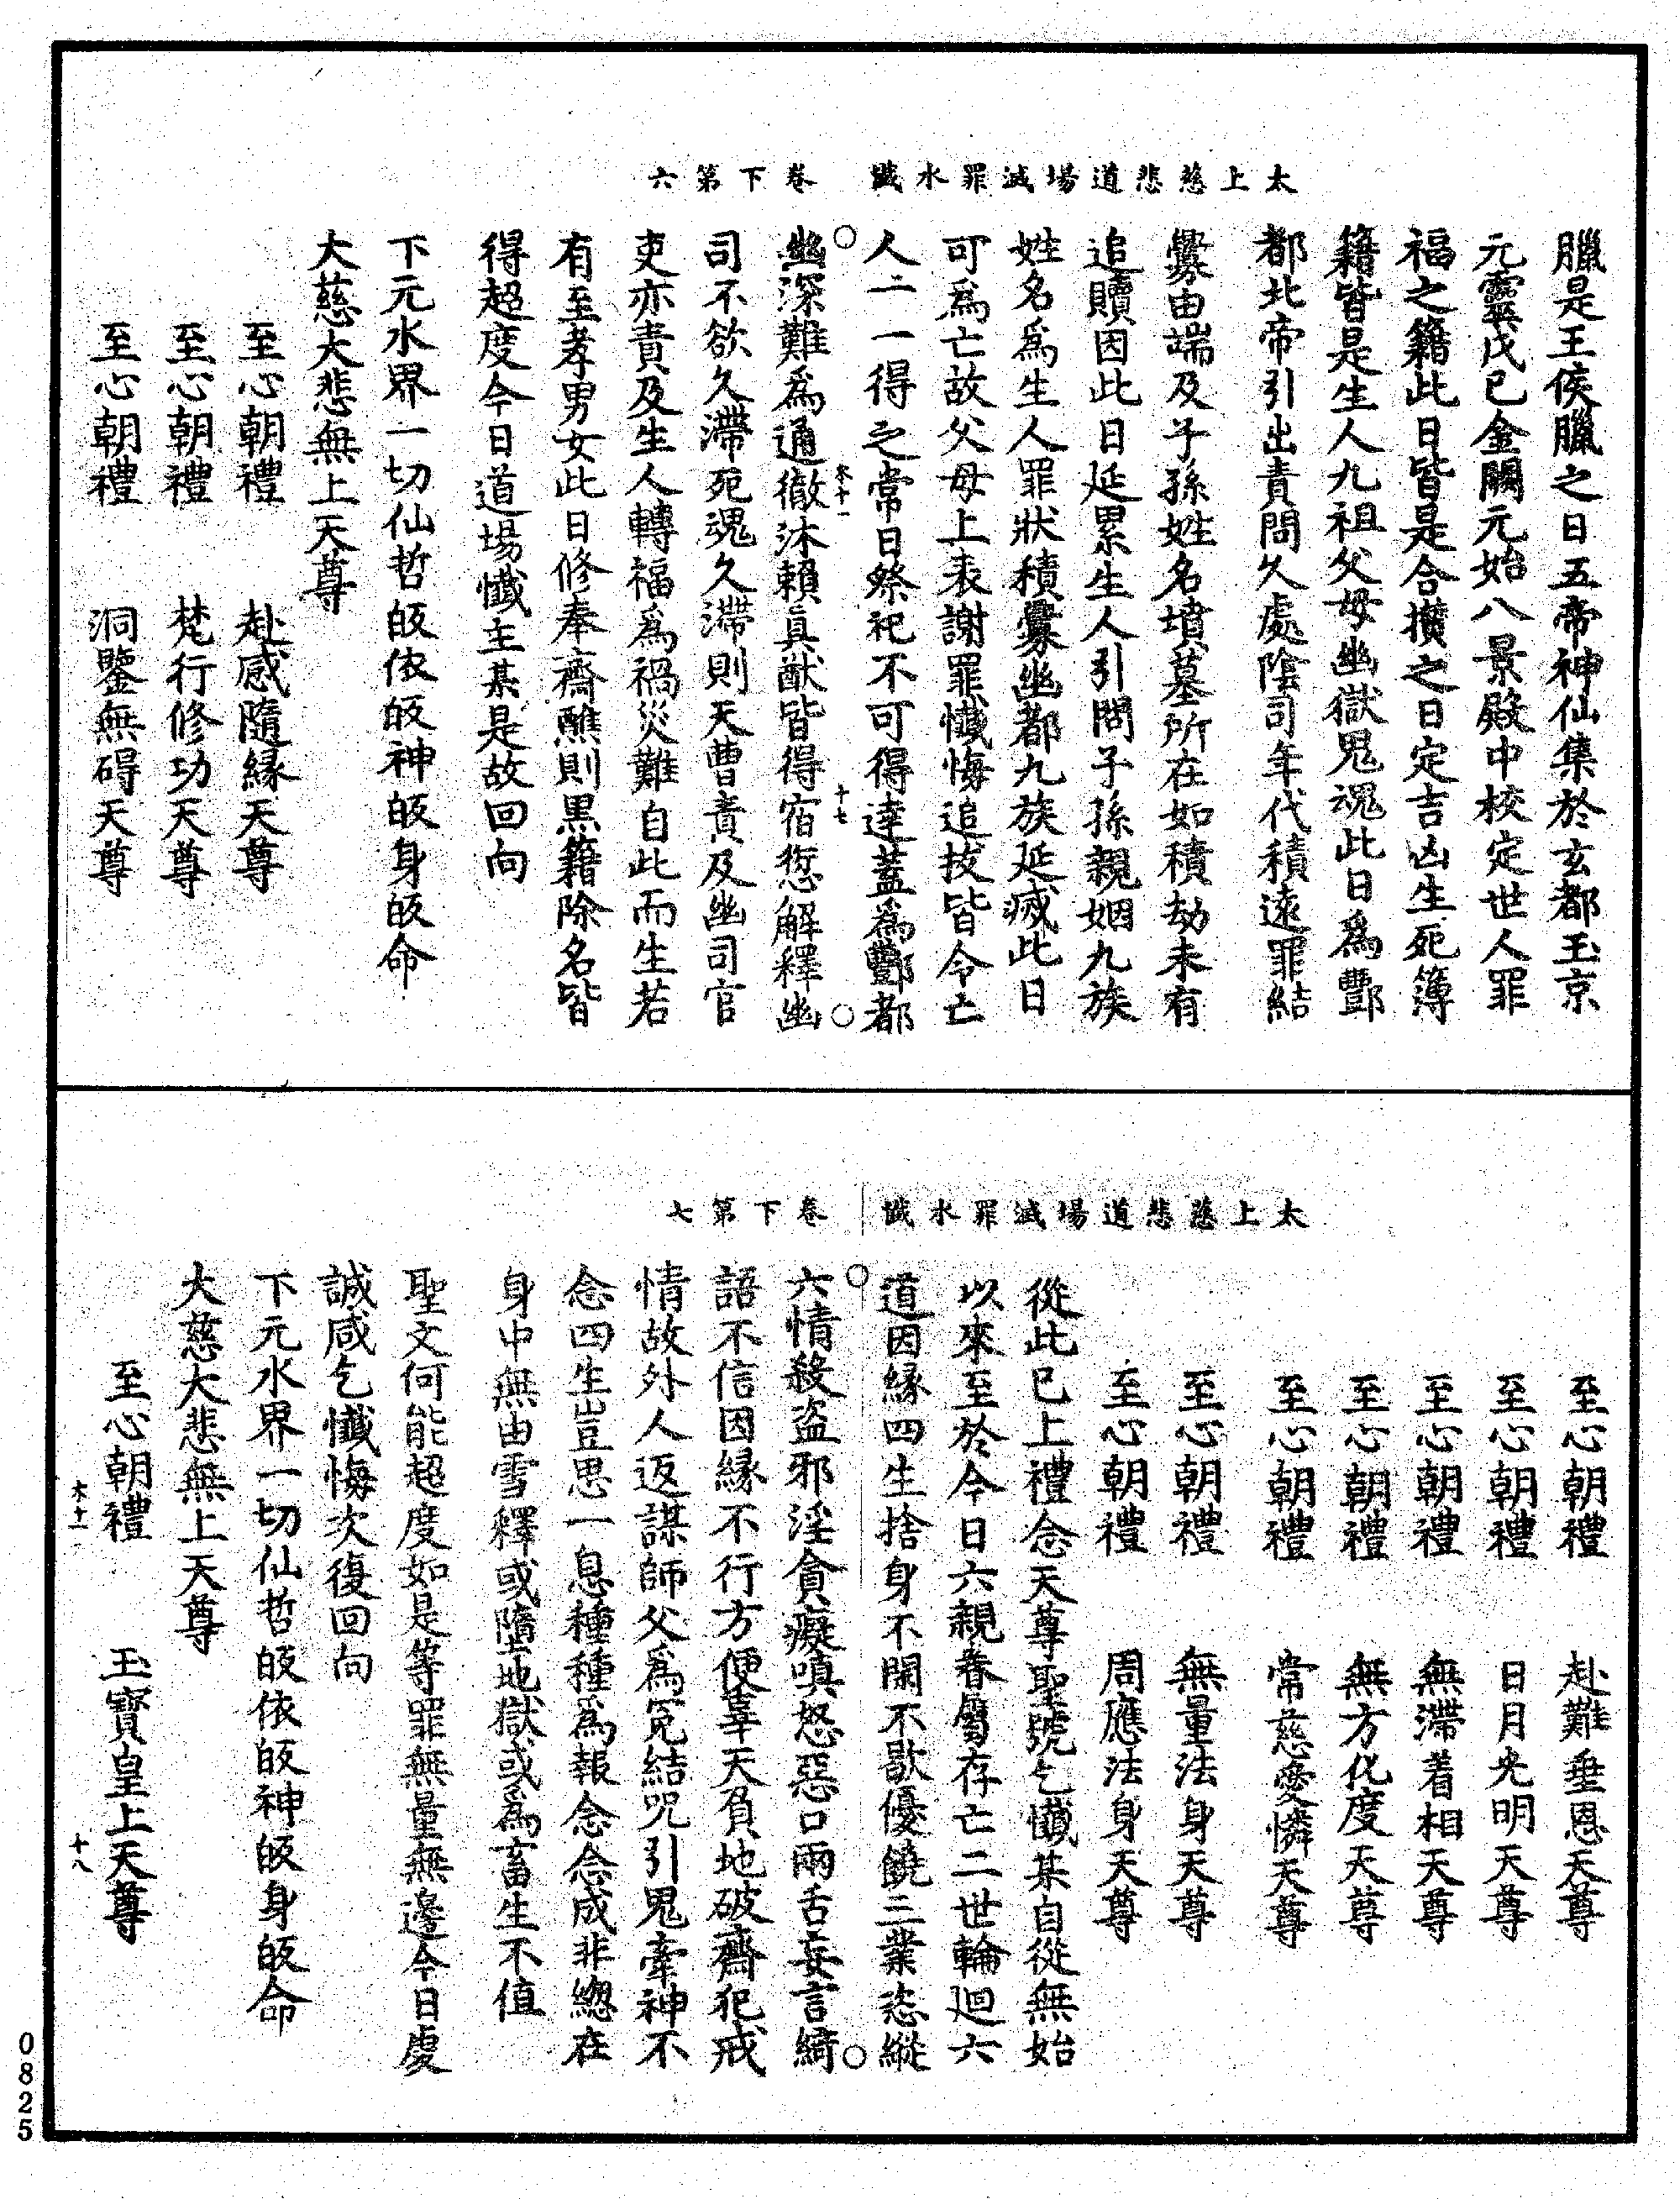 太上慈悲道場滅罪水懺　卷下第六
臘是王侯臘之日五帝神仙集於玄都玉京
元靈戊已金闕元始八景殿中校定世人罪
福之籍此日皆是合攢之日定吉凶生死簿
籍皆是生人九祖父母幽獄鬼魂此日為酆
都北帝引出責問久處陰司年代積遠罪結
釁由端及子孫姓名墳墓所在如積劫未有
追贖因此日延累生人引問子孫親姻九族
姓名為生人罪狀積釁幽都九族延滅此日
可為亡故父母上表謝罪懺悔追拔皆令亡
人二一得之常日祭祀不可得達蓋為酆都
木十一　十七
幽深難為通徹沐賴真猷皆得宿愆解釋幽
司不欲久滯死魂久滯則天曹責及幽司官
吏亦責及生人轉福為禍災難自此而生若
有至孝男女此日修奉齋醮則黑籍除名皆
得超度今日道場懺主某是故回向
下元水界一切仙哲皈依皈神皈身皈命
大慈大悲無上天尊
至心朝禮　赴感隨緣天尊
至心朝禮　梵行修功天尊
至心朝禮　洞鑒無碍天尊
太上慈悲道場滅罪水懺　卷下第七
至心朝禮　赴難垂恩天尊
至心朝禮　日月光明天尊
至心朝禮　無滯着相天尊
至心朝禮　無方化度天尊
至心朝禮　常慈愛憐天尊
至心朝禮　無量法身天尊
至心朝禮　周應法身天尊
從此已上禮念天尊聖號乞懺某自從無始
以來至於今日六親眷屬存亡二世輪迴六
道因緣四生捨身不閑不歇優饒三業恣縱
六情殺盜邪淫貪癡嗔怒惡口兩舌妄言綺
語不信因緣不行方便辜天負地破齋犯戒
情故外人返謀師父為冤結咒引鬼牽神不
念四生豈思一息種種為報念念成非總在
身中無由雪釋或墮地獄或為畜生不值
聖文何能超度如是等罪無量無邊今日虔
誠咸乞懺悔次復回向
下元水界一切仙哲皈依皈神皈身皈命
大慈大悲無上天尊
至心朝禮　玉寶皇上天尊
木十一　十八
0825